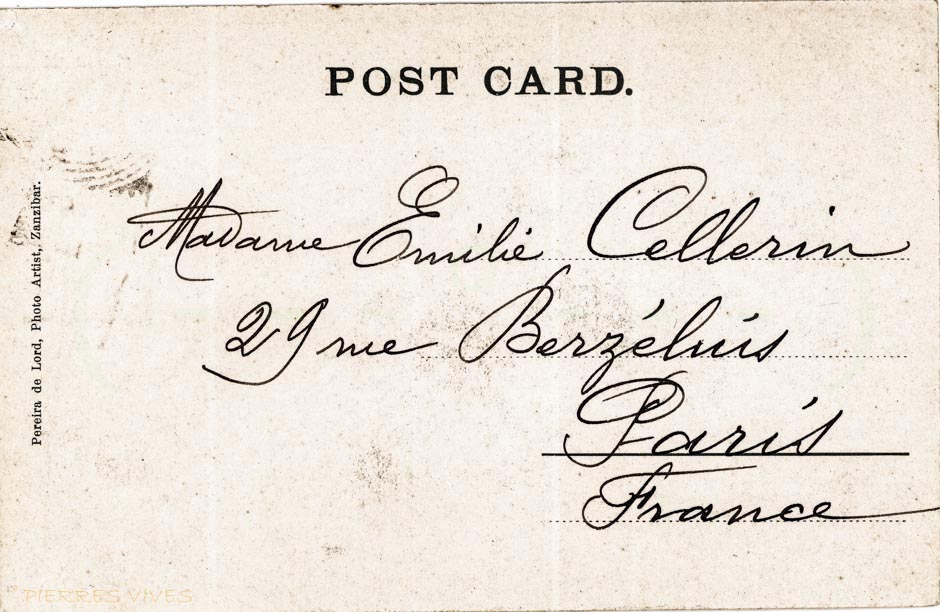 POST CARD.
Madame Emilie Cellerin
29 rue Berzéluis
Paris
France
Pereira de Lord, Photo Artist, Zanzibar.
PIERRES VIVES